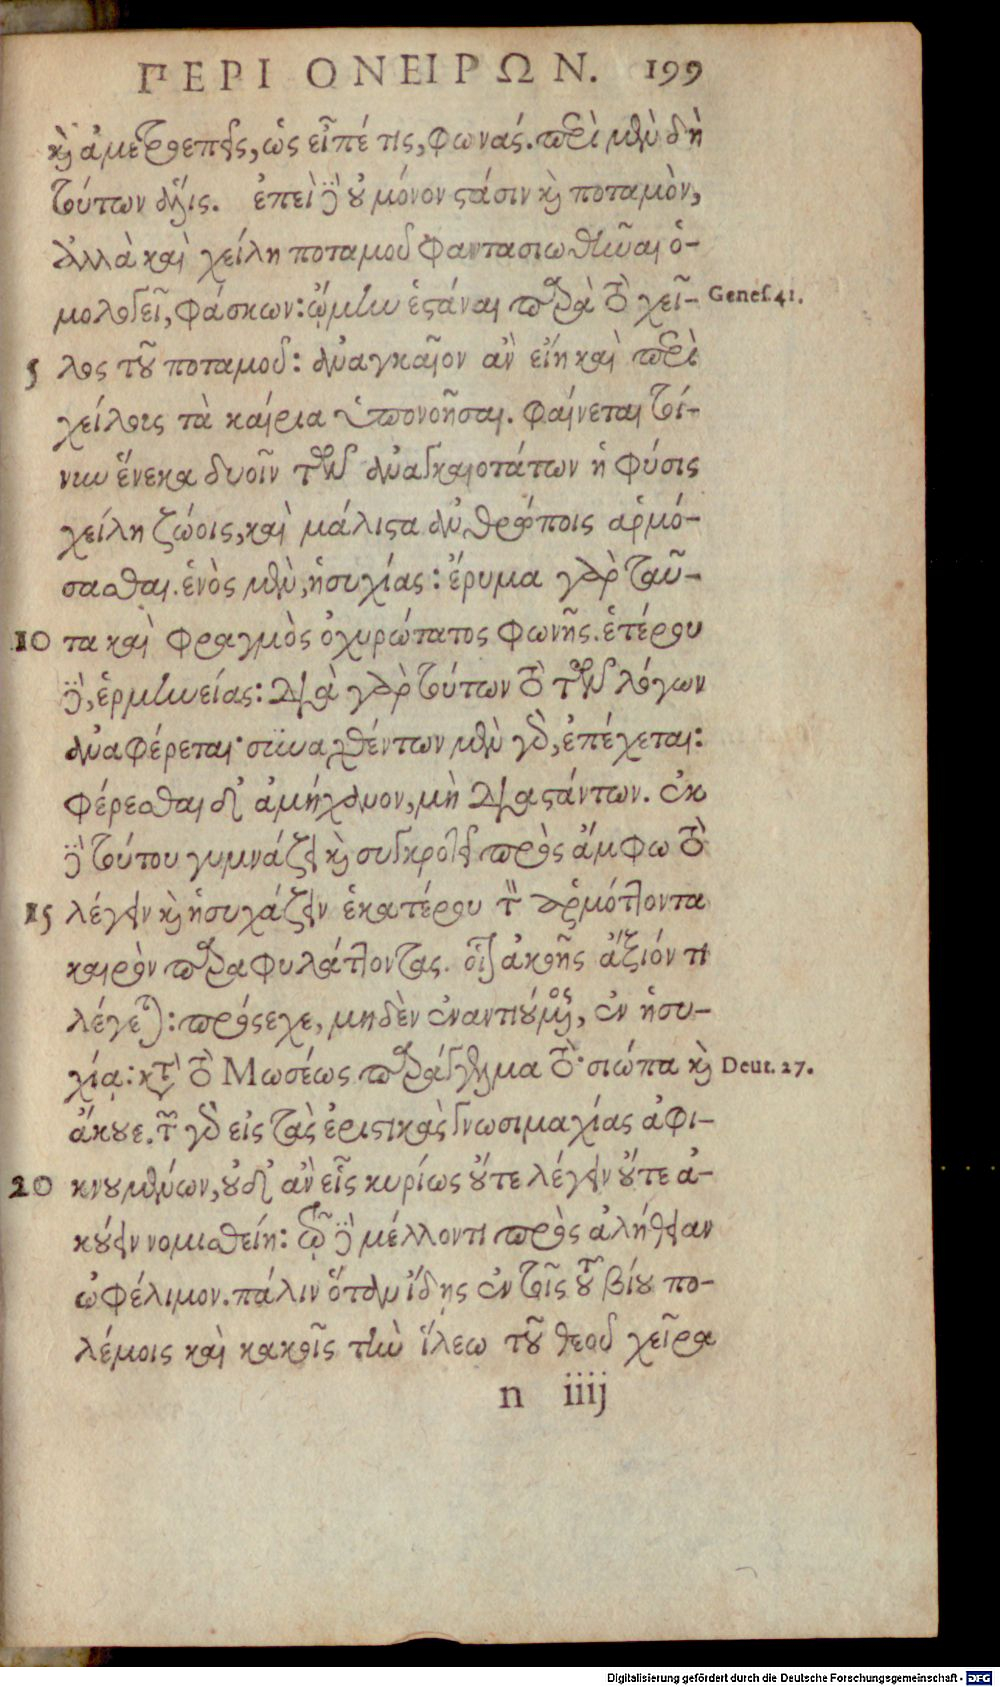 ΠΕΡΙ ΟΝΕΙΡΩΝ. 199
καὶ ἀμετροεπεῖς, ὡς εἶπέ τις, φωνάς. περὶ μὲν δὴ
τούτων ἅλις. ἐπεὶ δὲ οὐ μόνον στάσιν καὶ ποταμὸν,
ἀλλὰ καὶ χείλη ποταμοῦ φαντασιωθῆναι ὁ-
μολογεῖ, φάσκων: ᾤμην ἑστάναι παρὰ τὸ χεῖ-
Genes. 41.
5 λος τοῦ ποταμοῦ: ἀναγκαῖον ἂν εἴη καὶ περὶ
χείλους τὰ καίρια ὑπονοῆσαι. φαίνεται τί-
νων ἕνεκα δυοῖν τῶν ἀναγκαιοτάτων ἡ φύσις
χείλη ζώοις, καὶ μάλιστα ἀνθρώποις ἁρμό-
σασθαι. ἑνὸς μὲν, ἡσυχίας: ἔρυμα γὰρ ταῦ-
10 τα καὶ φραγμὸς ὀχυρώτατος φωνῆς. ἑτέρου
δὲ, ἑρμηνείας: διὰ γὰρ τούτων τὸ τῶν λόγων
ἀναφέρεται· συναχθέντων μὲν γὰρ, ἐπέχεται:
φέρεσθαι δὲ ἀμήχανον, μὴ διαστάντων. ἐκ
δὲ τούτου γυμνάζει καὶ συγκροτεῖ πρὸς ἄμφω τὸ
15 λέγειν καὶ ἡσυχάζειν ἑκατέρου τὸν ἁρμόττοντα
καιρὸν παραφυλάττοντας. οἷον ἀκοῆς ἄξιόν τι
λέγεται: πρόσεχε, μηδὲν ἐναντιούμενος, ἐν ἡσυ-
χίᾳ: κατὰ τὸ Μωσέως παράγγελμα τό· σιώπα καὶ
Deut. 27.
ἄκουε. τῶν γὰρ εἰς τὰς ἐριστικὰς γνωσιμαχίας ἀφι-
20 κνουμένων, οὐδὲ ἂν εἷς κυρίως οὔτε λέγειν οὔτε ἀ-
κούειν νομισθείη: τῷ δὲ μέλλοντι πρὸς ἀλήθειαν
ὠφέλιμον. πάλιν ὅταν ἴδῃς ἐν τοῖς τοῦ βίου πο-
λέμοις καὶ κακοῖς τὴν ἵλεω τοῦ θεοῦ χεῖρα
n iiij
Digitalisierung gefördert durch die Deutsche Forschungsgemeinschaft - DFG